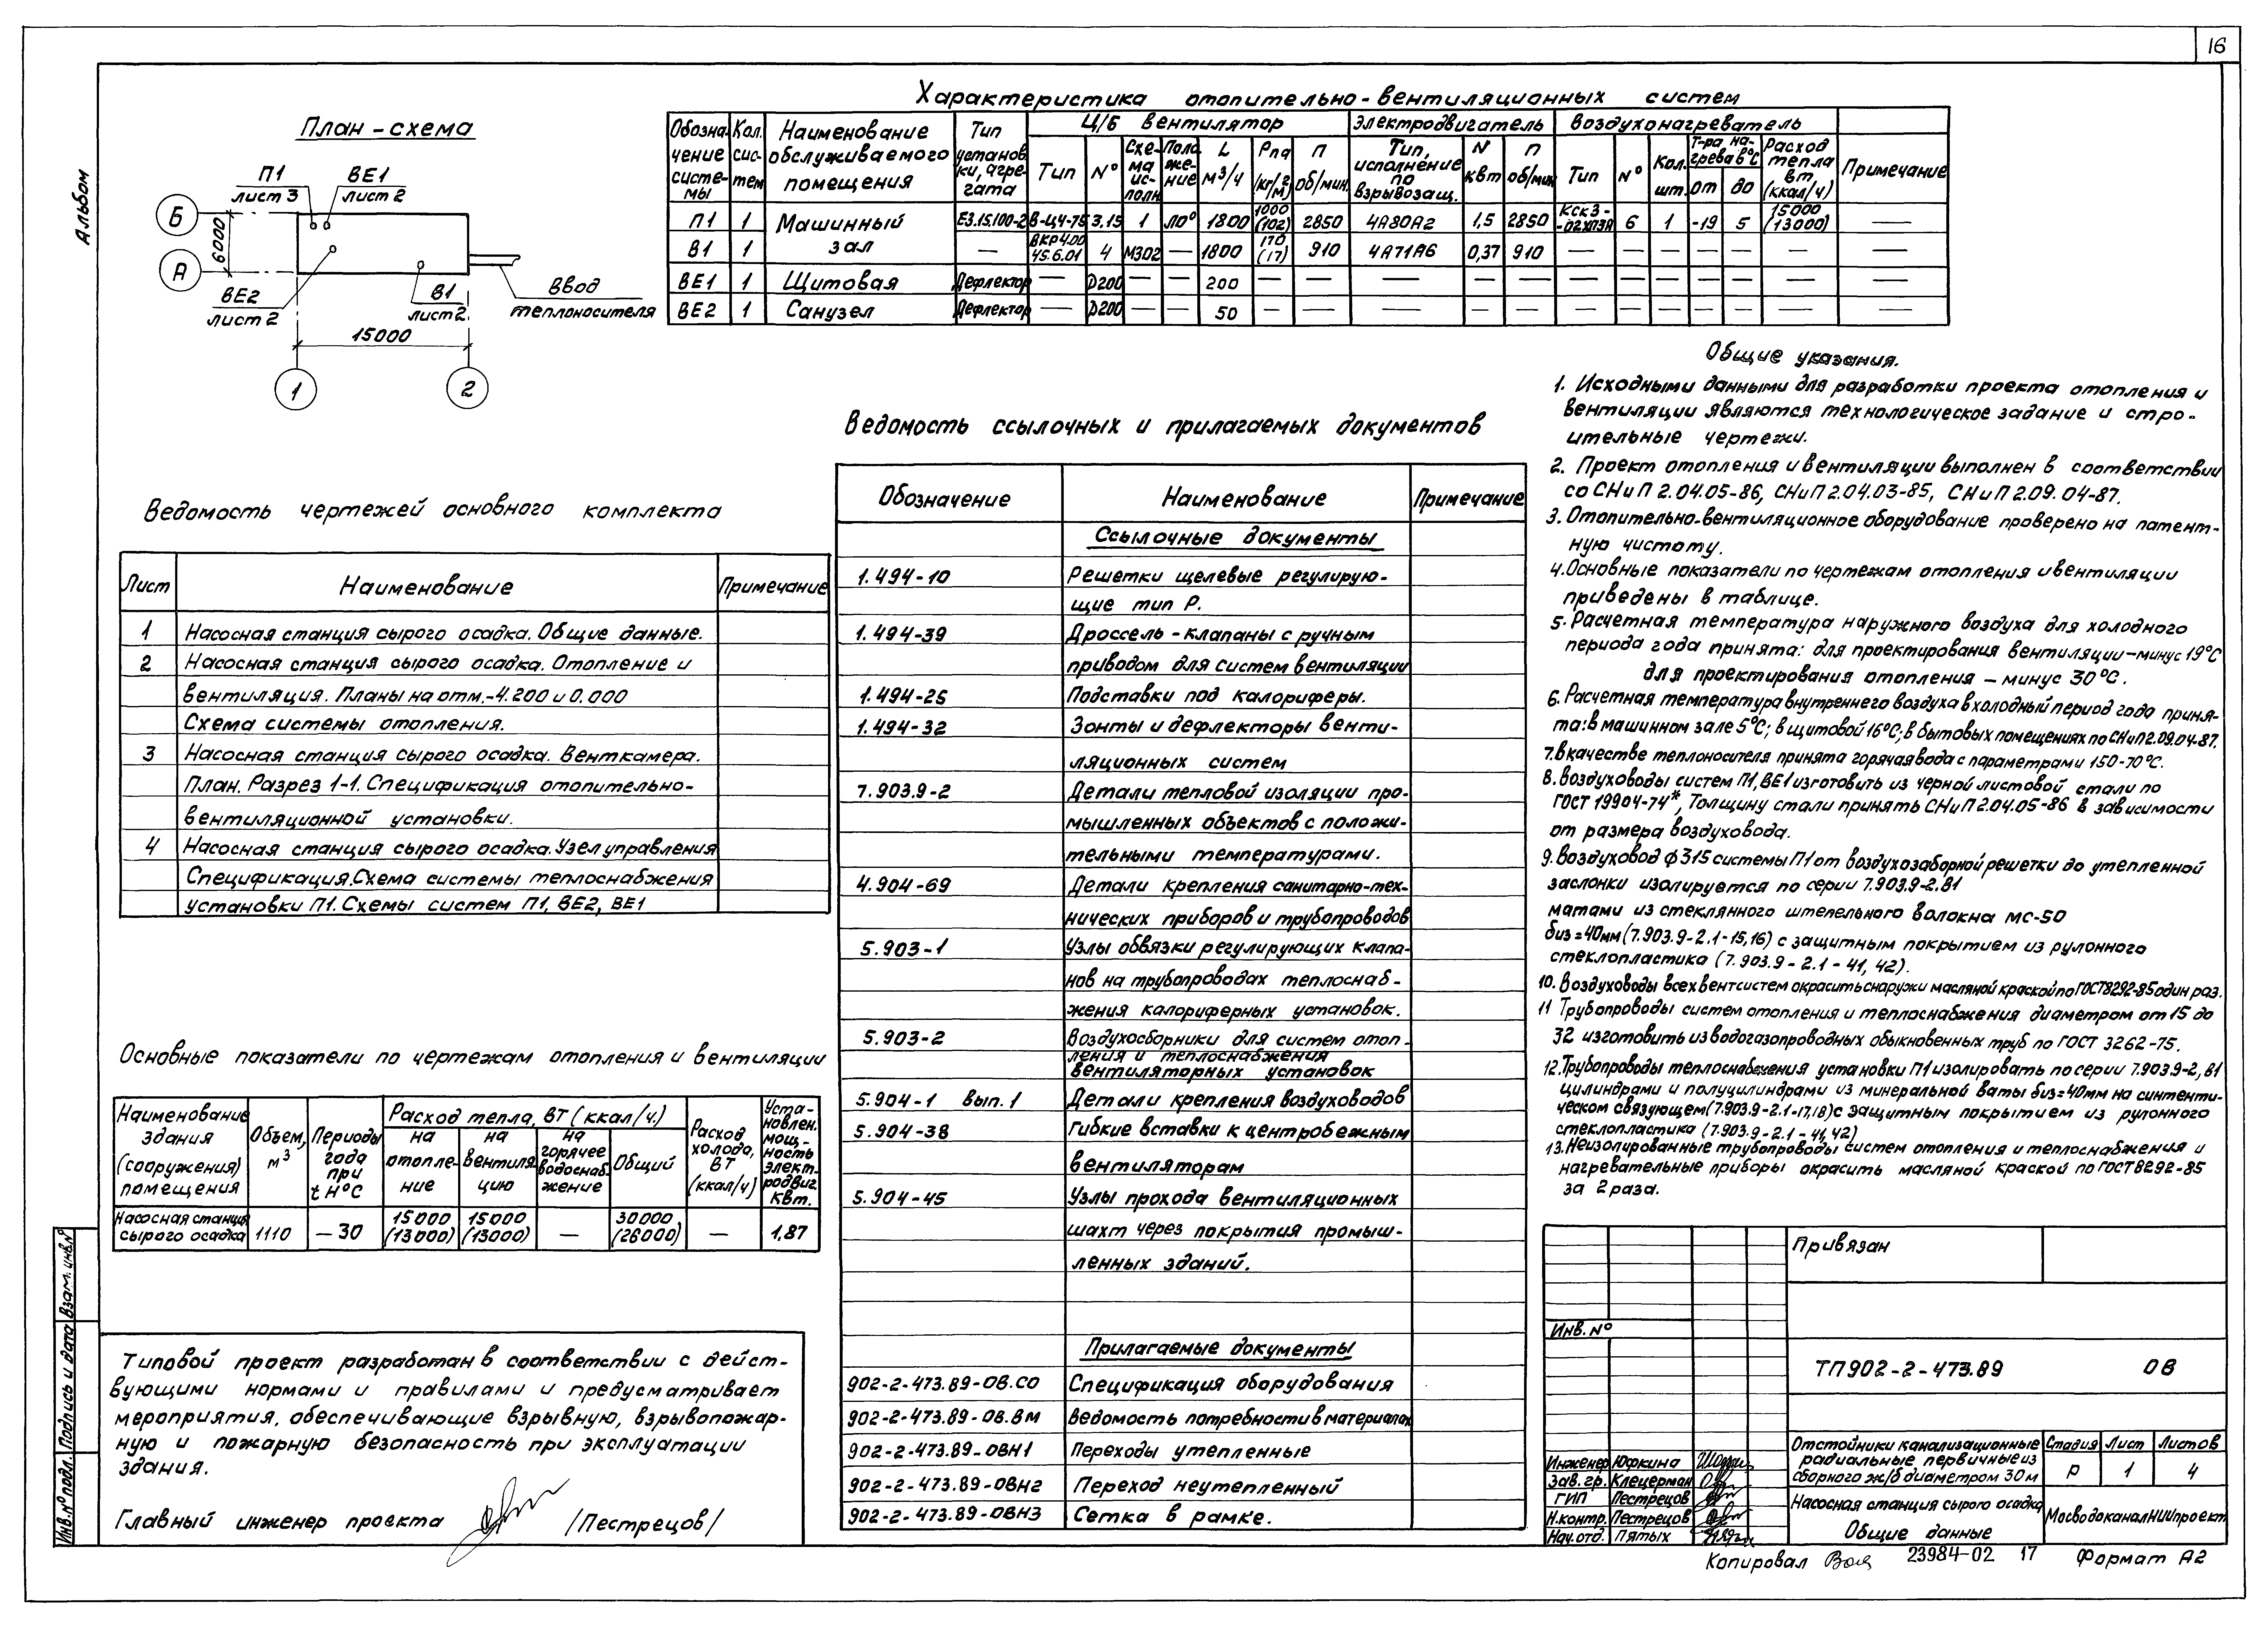 16
Альбом
План-схема
П1
лист 3
ВЕ1
лист 2
Б
А
6000
ВЕ2
лист 2
В1
лист 2
Ввод
теплоносителя
15000
1
2
Характеристика отопительно-вентиляционных систем
Обозначение системы | Кол. систем | Наименование обслуживаемого помещения | Тип установки, агрегата | Ц/Б вентилятор | Электродвигатель | Воздухонагреватель | Примечание
Тип | № | Схема исполн. | Положение | L м³/ч | Pпа (кг/м²) | п об/мин. | Тип, исполнение по взрывозащ. | N квт | п об/мин | Тип | № | Кол. шт. | Т-ра нагрева в °С от | до | Расход тепла вт (ккал/ч)
П1 | 1 | Машинный зал | Е3.15.100-2 | В-Ц4-75 | 3,15 | 1 | Л0° | 1800 | 1000 (102) | 2850 | 4А80А2 | 1,5 | 2850 | КСк3-02ХЛ3А | 6 | 1 | -19 | 5 | 15000 (13000) | —
В1 | 1 | — | ВКР4.00 45.6.01 | 4 | М302 | — | 1800 | 170 (17) | 910 | 4А71А6 | 0,37 | 910 | — | — | — | — | — | — | —
ВЕ1 | 1 | Щитовая | Дефлектор | — | D200 | — | — | 200 | — | — | — | — | — | — | — | — | — | — | — | —
ВЕ2 | 1 | Санузел | Дефлектор | — | D200 | — | — | 50 | — | — | — | — | — | — | — | — | — | — | — | —
Ведомость чертежей основного комплекта
Лист | Наименование | Примечание
1 | Насосная станция сырого осадка. Общие данные.
2 | Насосная станция сырого осадка. Отопление и
вентиляция. Планы на отм.-4.200 и 0.000
Схема системы отопления.
3 | Насосная станция сырого осадка. Венткамера.
План. Разрез 1-1. Спецификация отопительно-
вентиляционной установки.
4 | Насосная станция сырого осадка. Узел управления
Спецификация. Схема системы теплоснабжения
установки П1. Схемы систем П1, ВЕ2, ВЕ1
Основные показатели по чертежам отопления и вентиляции
Наименование здания (сооружения) помещения | Объем, м³ | Периоды года при tн°С | Расход тепла, вт (ккал/ч.) | Расход холода, вт (ккал/ч) | Установлен. мощность элект-родвиг. квт.
на отопление | на вентиляцию | на горячее водоснабжение | Общий
Насосная станция сырого осадка | 1110 | — 30 | 15000 (13000) | 15000 (13000) | — | 30000 (26000) | — | 1,87
Типовой проект разработан в соответствии с дейст-
вующими нормами и правилами и предусматривает
мероприятия, обеспечивающие взрывную, взрывопожар-
ную и пожарную безопасность при эксплуатации
здания.
Главный инженер проекта /Пестрецов/
Ведомость ссылочных и прилагаемых документов
Обозначение | Наименование | Примечание
Ссылочные документы
1.494-10 | Решетки щелевые регулирую-
щие тип Р.
1.494-39 | Дроссель-клапаны с ручным
приводом для систем вентиляции
1.494-25 | Подставки под калориферы.
1.494-32 | Зонты и дефлекторы венти-
ляционных систем
7.903.9-2 | Детали тепловой изоляции про-
мышленных объектов с положи-
тельными температурами.
4.904-69 | Детали крепления санитарно-тех-
нических приборов и трубопроводов
5.903-1 | Узлы обвязки регулирующих клапа-
нов на трубопроводах теплоснаб-
жения калориферных установок.
5.903-2 | Воздухосборники для систем отоп-
ления и теплоснабжения
вентиляторных установок
5.904-1 вып.1 | Детали крепления воздуховодов
5.904-38 | Гибкие вставки к центробежным
вентиляторам
5.904-45 | Узлы прохода вентиляционных
шахт через покрытия промыш-
ленных зданий.
Прилагаемые документы
902-2-473.89-ОВ.СО | Спецификация оборудования
902-2-473.89-ОВ.ВМ | Ведомость потребности в материалах
902-2-473.89-ОВН1 | Переходы утепленные
902-2-473.89-ОВН2 | Переход неутепленный
902-2-473.89-ОВН3 | Сетка в рамке.
Общие указания.
1. Исходными данными для разработки проекта отопления и
вентиляции являются технологическое задание и стро-
ительные чертежи.
2. Проект отопления и вентиляции выполнен в соответствии
со СНиП 2.04.05-86, СНиП 2.04.03-85, СНиП 2.09.04-87.
3. Отопительно-вентиляционное оборудование проверено на патент-
ную чистоту.
4. Основные показатели по чертежам отопления и вентиляции
приведены в таблице.
5. Расчетная температура наружного воздуха для холодного
периода года принята: для проектирования вентиляции—минус 19°С
для проектирования отопления — минус 30°С.
6. Расчетная температура внутреннего воздуха в холодный период года приня-
та: в машинном зале 5°С; в щитовой 16°С; в бытовых помещениях по СНиП 2.09.04-87.
7. В качестве теплоносителя принята горячая вода с параметрами 150-70°С.
8. Воздуховоды систем П1, ВЕ1 изготовить из черной листовой стали по
ГОСТ 19904-74*, Толщину стали принять СНиП 2.04.05-86 в зависимости
от размера воздуховода.
9. Воздуховод ф 315 системы П1 от воздухозаборной решетки до утепленной
заслонки изолируется по серии 7.903.9-2.В1
матами из стеклянного штепельного волокна МС-50
биз=40мм (7.903.9-2.1-15,16) с защитным покрытием из рулонного
стеклопластика (7.903.9-2.1-41, 42).
10. Воздуховоды всех вентсистем окрасить снаружи масляной краской по ГОСТ 8292-85 один раз.
11 Трубопроводы систем отопления и теплоснабжения диаметром от 15 до
32 изготовить из водогазопроводных обыкновенных труб по ГОСТ 3262-75.
12. Трубопроводы теплоснабжения установки П1 изолировать по серии 7.903.9-2, В1
цилиндрами и полуцилиндрами из минеральной ваты биз=40мм на синтети-
ческом связующем (7.903.9-2.1-17,18) с защитным покрытием из рулонного
стеклопластика (7.903.9-2.1-41,42)
13. Неизолированные трубопроводы систем отопления и теплоснабжения и
нагревательные приборы окрасить масляной краской по ГОСТ 8292-85
за 2 раза.
Привязан
Инв. №
ТП902-2-473.89 ОВ
Инженер Юфкина
Зав. гр. Клецерман
ГИП Пестрецов
Н.контр. Пестрецов
Нач.отд. Пятых
Отстойники канализационные
радиальные первичные из
сборного ж/б диаметром 30м
Стадия | Лист | Листов
Р | 1 | 4
Насосная станция сырого осадка
Общие данные
МосводоканалНИИпроект
Копировал 23984-02 17 Формат А2
Инв.№ подл. | Подпись и дата | Взам. инв.№